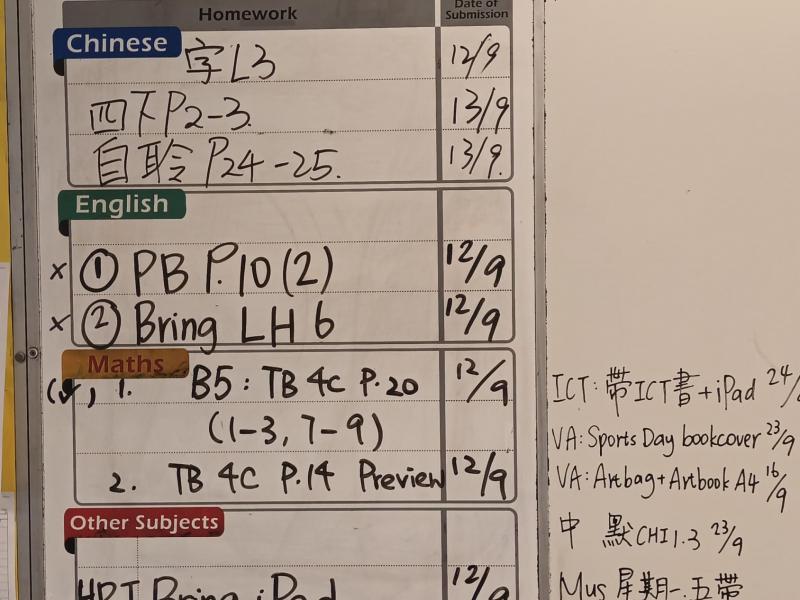 Homework
Date of Submission
Chinese
字L3 12/9
四下P2-3. 13/9
自聆P24-25. 13/9.
English
× ① PB P.10(2) 12/9
× ② Bring LH 6 12/9
Maths
(✓) 1. B5: TB 4C P.20 12/9
(1-3, 7-9)
2. TB 4C P.14 Preview 12/9
Other Subjects
Bring iPad 12/9
ICT: 帶ICT書+iPad 24/
VA: Sports Day bookcover 23/9
VA: Artbag+Artbook A4 16/9
中 默CHI1.3 23/9
Mus 星期一.五帶